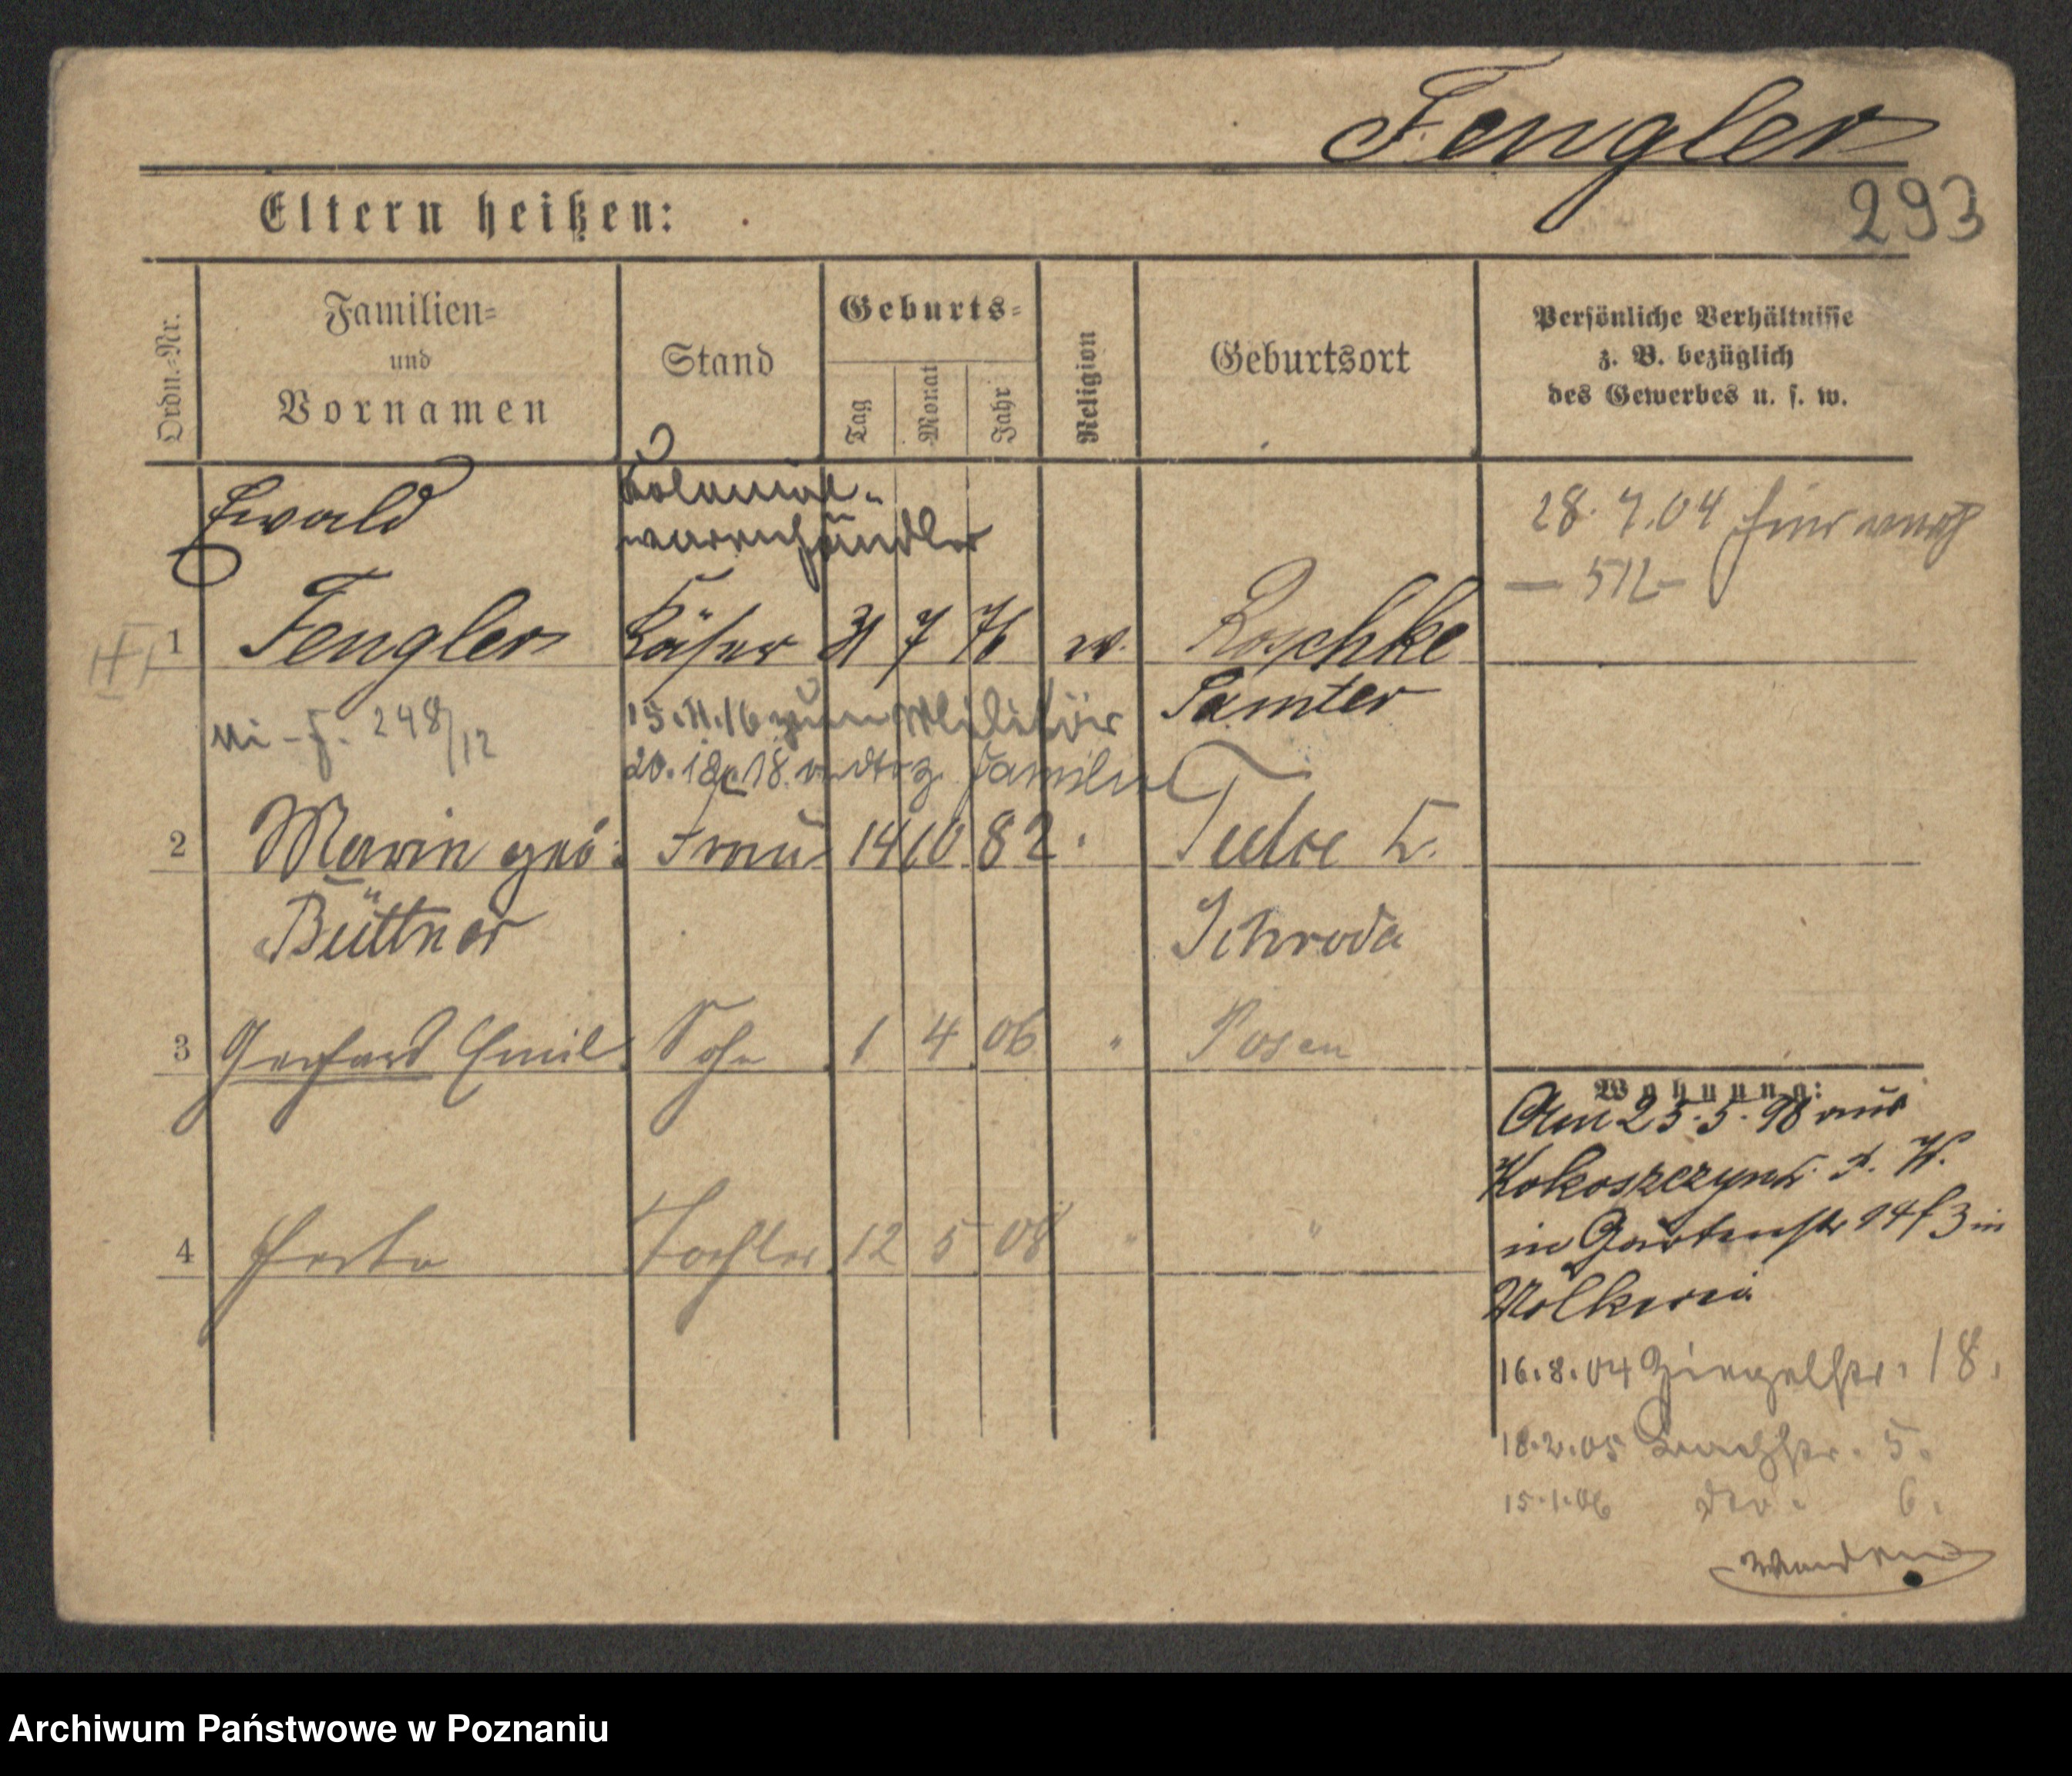 Fengler
293
Eltern heißen:
Ordn.-Nr.
Familien-
und
Vornamen
Stand
Geburts-
Tag
Monat
Jahr
Religion
Geburtsort
Persönliche Verhältnisse
z. B. bezüglich
des Gewerbes u. s. w.
Ewald
Kolonial-
warenhändler
28. 7. 04
— 512 —
1 Fengler Käser 31 7 76 ev. Roschke
Samter
248/12
15. 11. 16 zum Militär
20. 12. 18. Familie
2 Marie geb. Frau 14 10 82 " Tulce K.
Büttner
Schroda
3 Gerhard Emil Sohn 1 4 06 " Posen
Wohnung:
Am 25. 5. 98 aus
Kokoszczyn
in Gartenstr 14 b in
4 Herta Tochter 12 5 08 " "
Molkerei
16. 8. 04 Ziegelstr. 18.
18. 2. 05 5.
15. 1. 06 dto. 6.
wenden
Archiwum Państwowe w Poznaniu